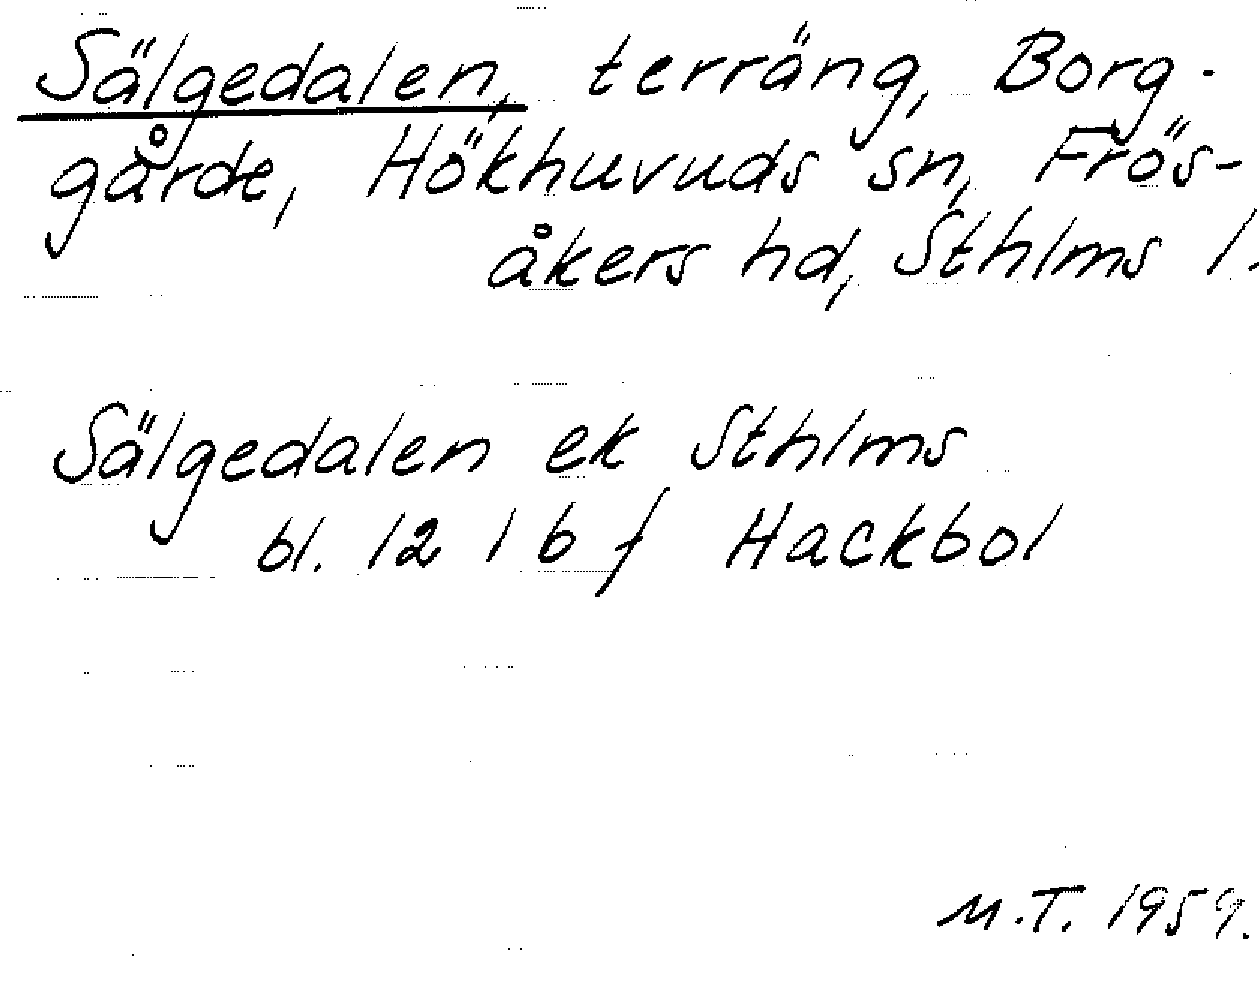 Sälgedalen, terräng, Borg-
gårde, Hökhuvuds sn, Frös-
åkers hd, Sthlms l.
Sälgedalen ek Sthlms
bl. 12 1 b f Hackbol
M.T. 1959.